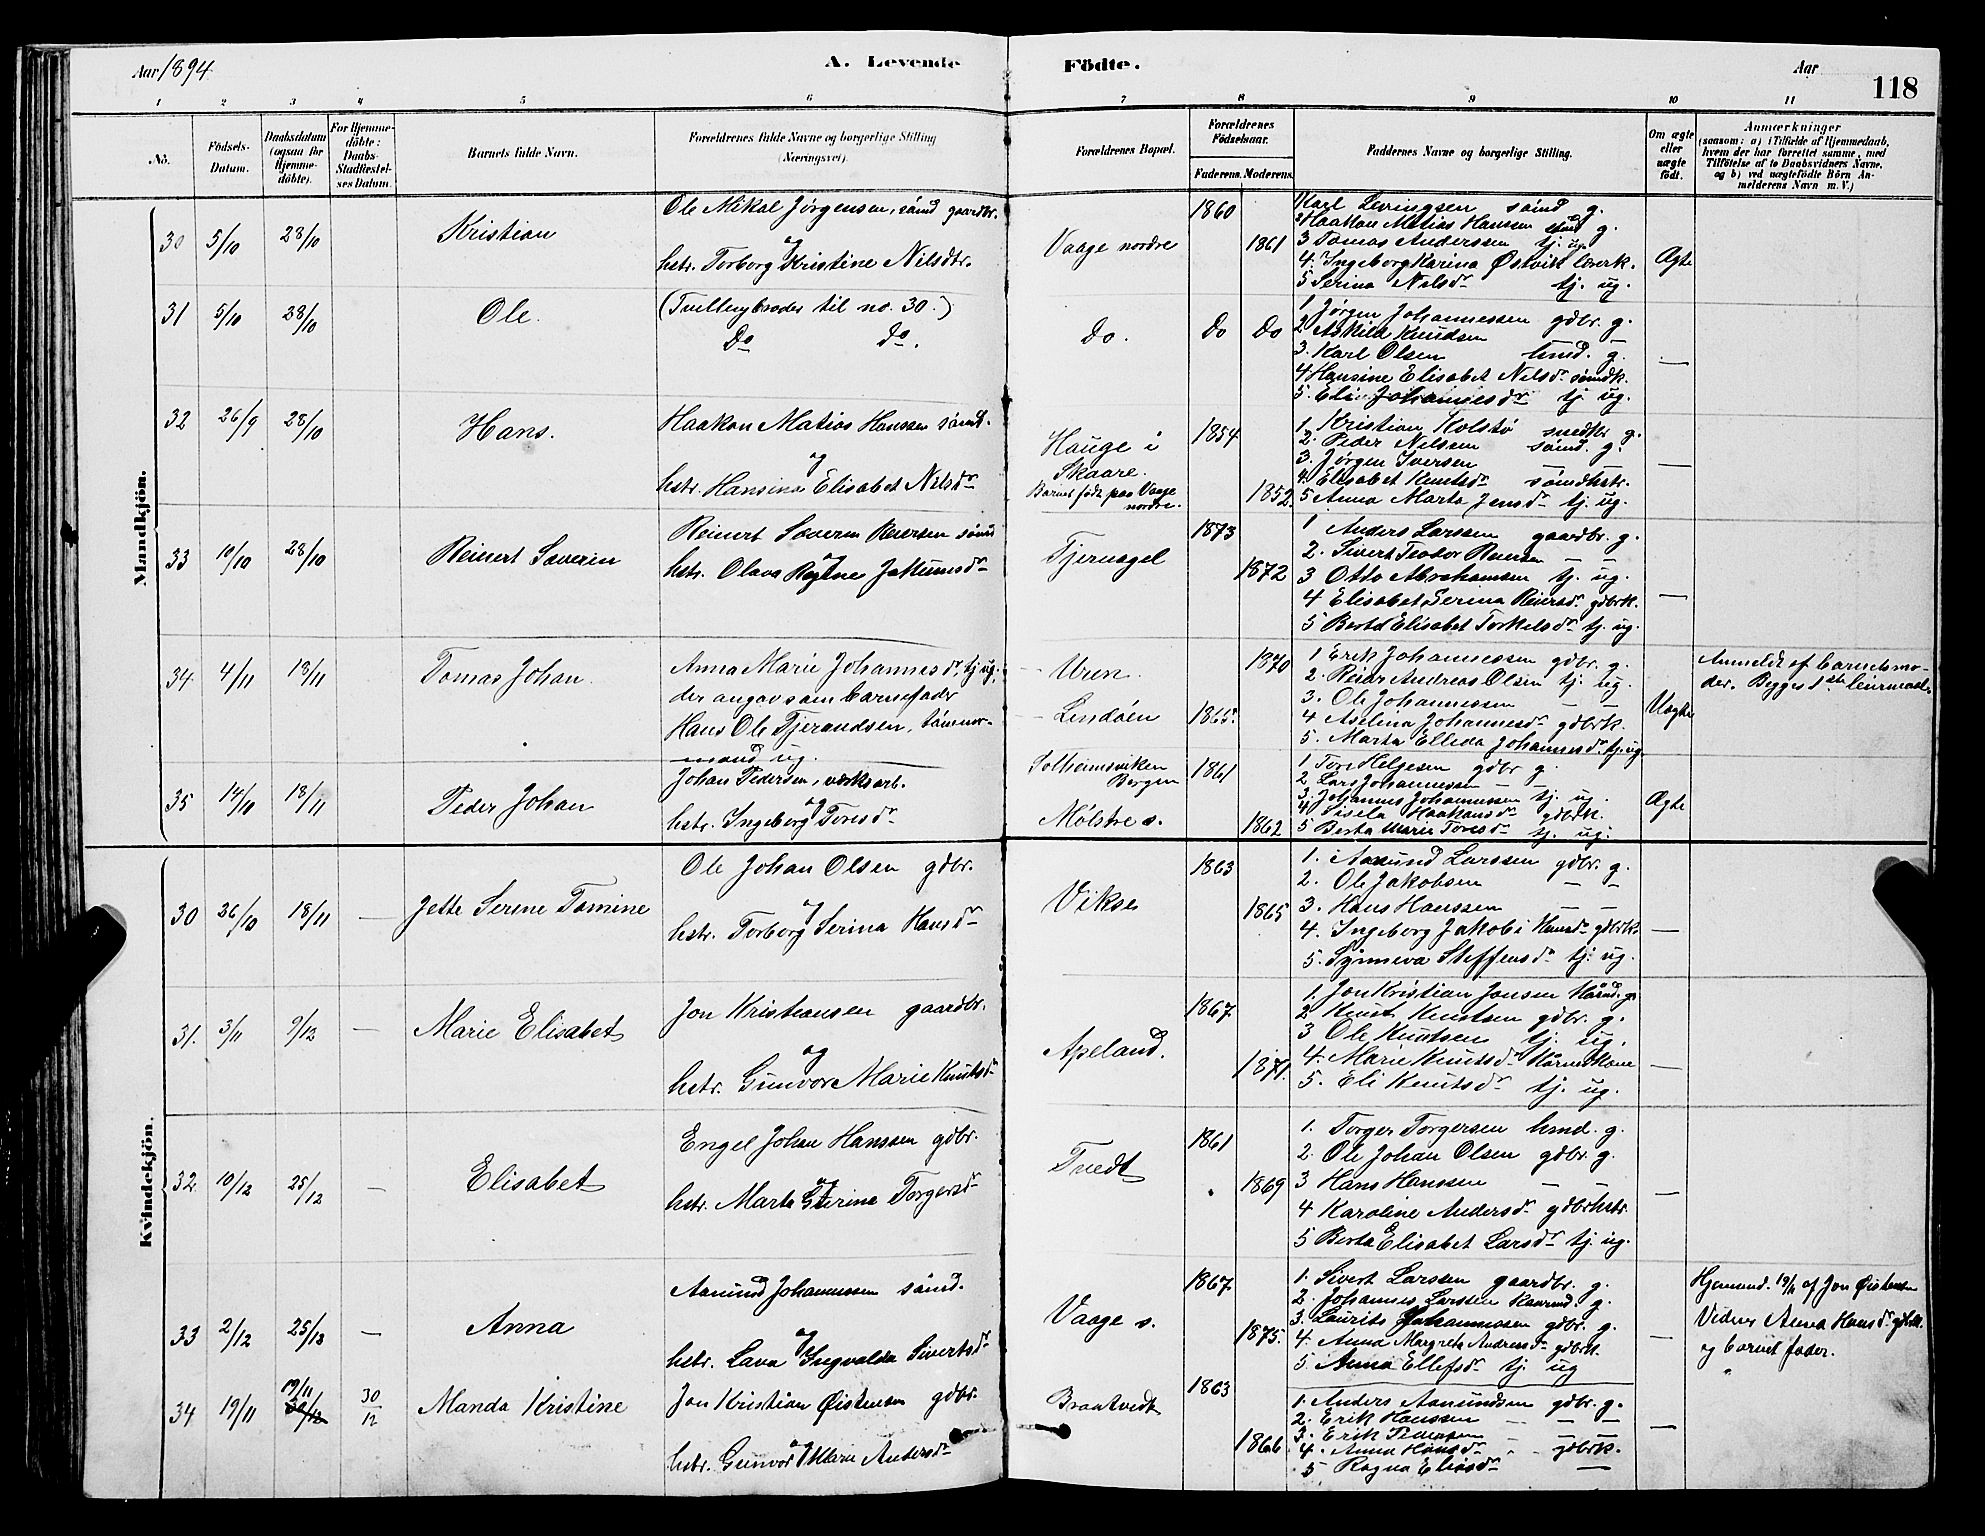 Aar 1894.
A. Levende Födte.
Aar
118
1 2 3 4 5 6 7 8 9 10 11
No.
Födsels-Datum.
Daabsdatum (ogsaa for Hjemme-döbte).
For Hjemme-döbte: Daabs-Stadfæstel-ses Datum.
Barnets fulde Navn.
Forældrenes fulde Navne og borgerlige Stilling (Næringsvei).
Forældrenes Bopæl.
Forældrenes Födselsaar.
Faderens. Moderens.
Faddernes Navne og borgerlige Stilling.
Om ægte eller uægte födt.
Anmærkninger
(saasom: a) i Tilfælde af Hjemmedaab, hvem der har forrettet samme, med Tilföielse af to Daabsvidners Navne, og b) ved uægtefödte Börn An-melderens Navn m. V.)
Mandkjön.
30 5/10 28/10 Kristian
Ole Mikal Jørgensen, sömd gaardbr.
og
hstr. Torborg Kristine Nilsdtr.
Vaage nordre 1860 1861
1 Karl Leringsen sömd g.
2 Haakon Matias Hanssen sömd g.
3 Tomas Anderssen tj. ug.
4. Ingeborg Karina Østvik lærerk.
5 Serina Nelsdr tj. ug.
Ægte
31 5/10 28/10 Ole.
(Tvillingbroder til no. 30.)
Do do.
Do. Do Do
1 Jørgen Johannessen gdbr. g.
2 Askild Knudsen —
3. Karl Olsen hmd. g.
4 Hansine Elisabet Nelsdr sömdk.
5. Eli Johannesdr tj. ug.
—
32 26/9 28/10 Hans.
Haakon Matias Hanssen sömd.
og
hstr. Hansina Elisabet Nelsdr
Hauge i Skaare.
Barnet født paa Vaage nordre.
1854 1852.
1. Kristian Kolstø snedkr g.
2. Peder Nelsen sömd. g.
3. Jørgen Iversen —
4. Elisabet Knutsdr sömdhstr.
5 Anna Marta Jensdr tj. ug.
—
33 10/10 28/10 Reinert Severin
Reinert Severin Reiersen sömd
og
hstr. Olava Regine Jakumsdr
Tjernagel 1873 1872
1 Anders Larssen gaardbr. g.
2. Sivert Teodor Reiersen — —
3 Otto Abrahamsen tj. ug.
4 Elisabet Serina Reiersdr gdbrk.
5 Berta Elisabet Torkelsdr tj. ug.
—
34. 4/11 18/11 Tomas Johan.
Anna Marie Johannesdr, tj ug,
der angav som barnefader
Hans Ole Tjerandsen, tömmer-
mand ug.
Uren.
Lendöen
1865. 1870
1. Erik Johannessen gdbr. g.
2. Reier Andreas Olsen tj. ug.
3. Ole Johannessen — —
4 Aselina Johannesdr gdbrk.
5. Marta Elleda Johannesdr. tj. ug
Uægte
Anmeldt af barnets mo-
der. Begges 1ste leiermaal.
35 14/10 18/11 Peder Johan
Johan Pedersen, værksarb.
og
hstr. Ingeborg Toresdr
Solheimsviken Bergen
Mølstre s.
1861 1862
1. Tore Helgesen gdbr g.
2. Lars Johannessen — —
3. Johannes Johannessen tj. ug.
4. Sisela Haakonsdr gdbrk.
5 Berta Marie Toresdr tj. ug.
Ægte
Kvindekjön.
30 26/10 18/11 — Jette Serine Tomine
Ole Johan Olsen gdbr.
og
hstr. Torborg Serina Hansdr
Vikse 1863 1865
1. Aamund Larssen gdbr. g.
2. Ole Jakobsen — —
3. Hans Hanssen — —
4. Ingeborg Jakobi Hansdr gdbrk.
5. Synneva Steffensdr tj. ug.
—
31. 3/11 9/12 — Marie Elisabet
Jon Kristiansen gaardbr.
og
hstr. Gunvor Marie Knutsdr
Apeland. 1867. 1871.
1. Jon Kristian Jonsen Kårmd. g.
2 Knut Knutsen gdbr. g.
3 Ole Knutsen tj. ug.
4. Marie Knutsdr Kårmdkone
5. Eli Knutsdr tj. ug.
—
32. 10/12 25/12 — Elisabet
Engel Johan Hanssen gdbr.
og
hstr. Marta Serine Torgersdr
Tvedt 1861 1869
1. Torger Torgersen hmd. g.
2. Ole Johan Olsen gdbr. g.
3 Hans Hanssen — —
4 Karoline Andersdr gdbrhstr.
5 Berta Elisabet Larsdr tj. ug.
—
33 2/12 25/12 — Anna
Aamund Johannessen sömd.
og
hstr. Lava Ingvalda Sivertsdr
Vaage s. 1867. 1875.
1. Sivert Larssen gaardbr. g.
2. Johannes Larssen Kaarmd. g.
3. Laurits Johannessen gdbr. g.
4. Anna Margreta Andreasdr gdbrk.
5. Anna Ellefsdr tj. ug
—
Hjemmed. 19/11 af Jon Øistensen
Vidner Anna Hansdr gdbrk.
og barnets fader.
34 19/11 19/11 30/12 30/12 Manda Kristine
Jon Kristian Øistensen gdbr.
og
hstr. Gunvor Marie Andersdr
Braatvedt 1863 1866
1. Anders Aamundsen gdbr. g.
2. Erik Hanssen — —
3. Erik Pedersen — —
4. Anna Hansdr gdbrk.
5 Ragna Eliasdr —
—